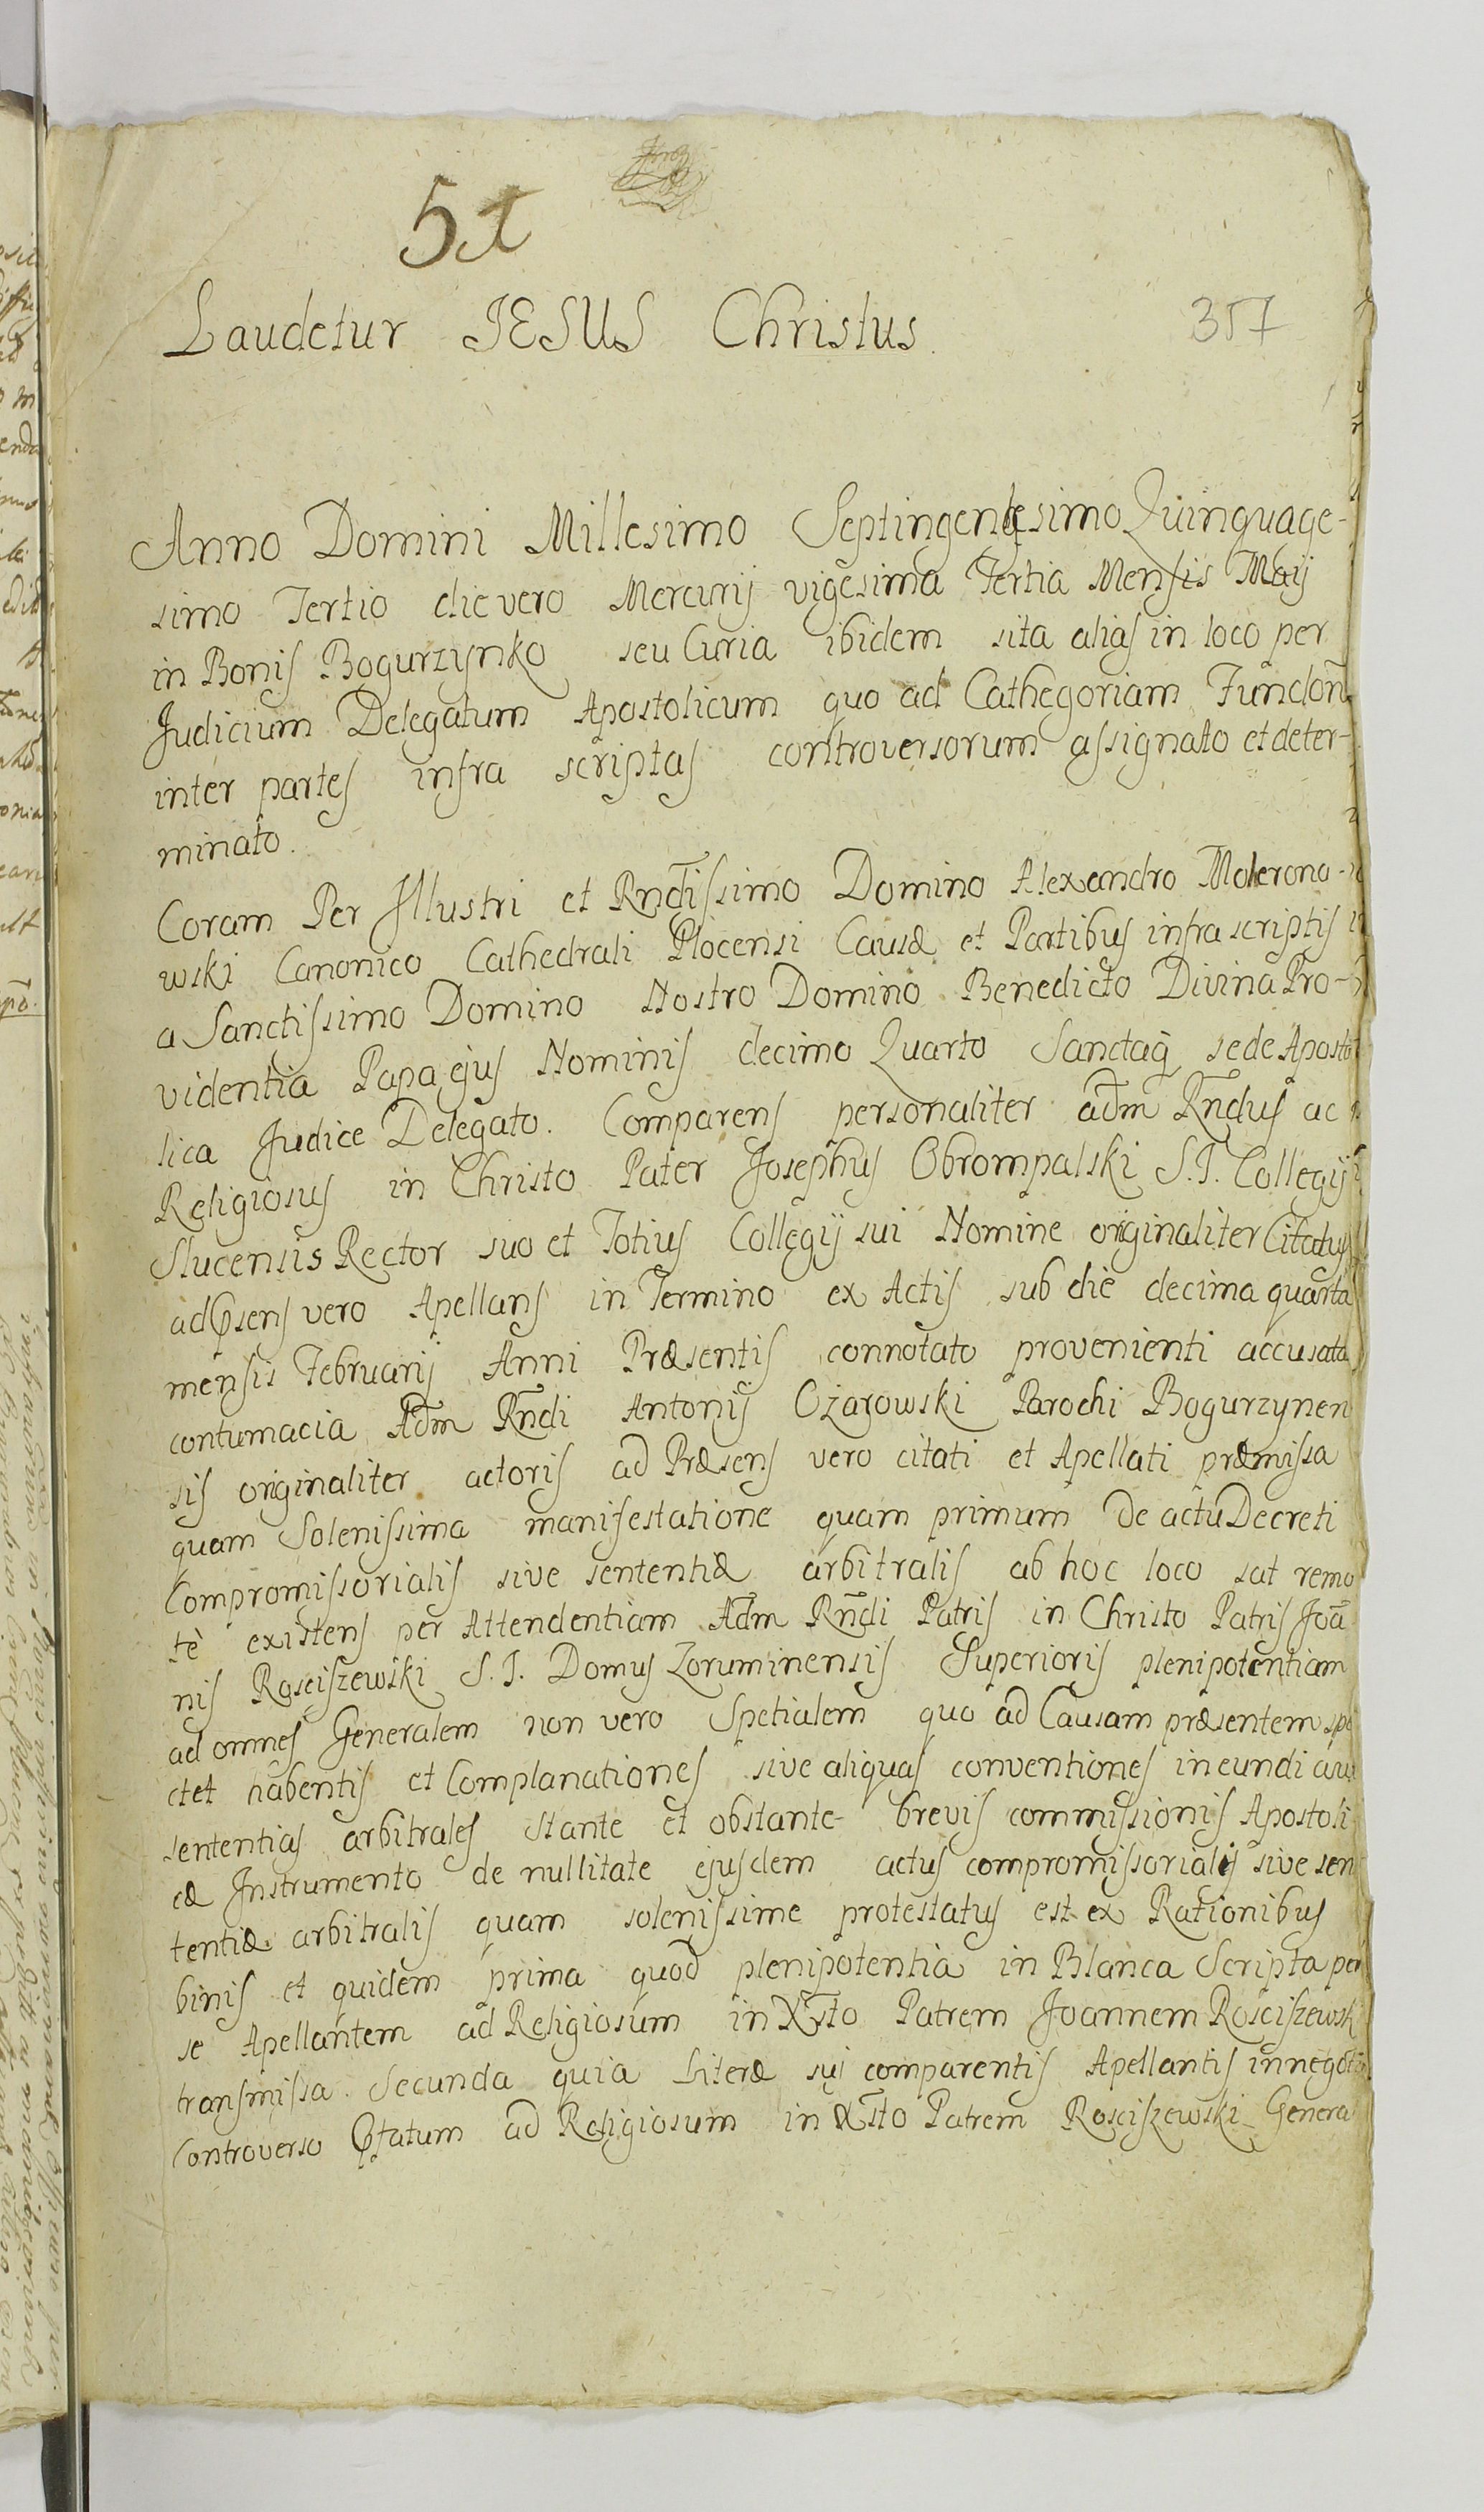 51
357
Laudetur JESUS Christus.
Anno Domini Millesimo Septingentesimo Quinquage-
simo Tertio die vero Mercurij vigesima Tertia Mensis Maij
in Bonis Bogurzynko seu Curia ibidem sita alias in loco per
Judicium Delegatum Apostolicum quo ad Cathegoriam Fundorũ
inter partes infra scriptas controversorum assignato et deter-
minato.
Coram Per Illustri et Rndissimo Domino Alexandro Molerono-
wski Canonico Cathedrali Plocensi Causæ et Partibus infra scriptis
a Sanctissimo Domino Nostro Domino Benedicto Divina Pro-
videntia Papa ejus Nominis decimo Quarto Sanctaq̃ sede Aposto
lica Judice Delegato. Comparens personaliter adm Rndus ac
Religiosus in Christo Pater Josephus Obrompalski S.J. Collegij
Slucensis Rector suo et Totius Collegij sui Nomine originaliter Citatus
ad Psens vero Apellans in Termino ex Actis sub die decima quarta
mensis Februarij Anni Præsentis connotato provenienti accusata
contumacia Adm Rndi Antonij Ożarowski Parochi Bogurzynen
sis originaliter actoris ad Præsens vero citati et Apellati præmissa
quam Solenissima manifestatione quam primum De actu Decreti
Compromissorialis sive sententiæ arbitralis ab hoc loco sat remo
tè existens per Attendentiam Adm Rndi Patris in Christo Patris Joã
nis Rosciszewski S.J. Domus Zoruminensis Superioris plenipotentiam
ad omnes Generalem non vero Spetialem quo ad Causam præsentem spe
ctet habentis et Complanationes sive aliquas conventiones ineundi
sententias arbitrales stante et obstante brevis commissionis Apostoli
cæ Instrumento de nullitate ejusdem actus compromissorialis sive sen
tentiæ arbitralis quam solenissime protestatus est ex Rationibus
binis et quidem prima quod plenipotentia in Blanca Scripta per
se Apellantem ad Religiosum in Xsto Patrem Joannem Rosciszewski
transmissa. Secunda quia Literæ sui comparentis Apellantis in negotio
Controverso Pstatum ad Religiosum in Xsto Patrem Rosciszewski Genera